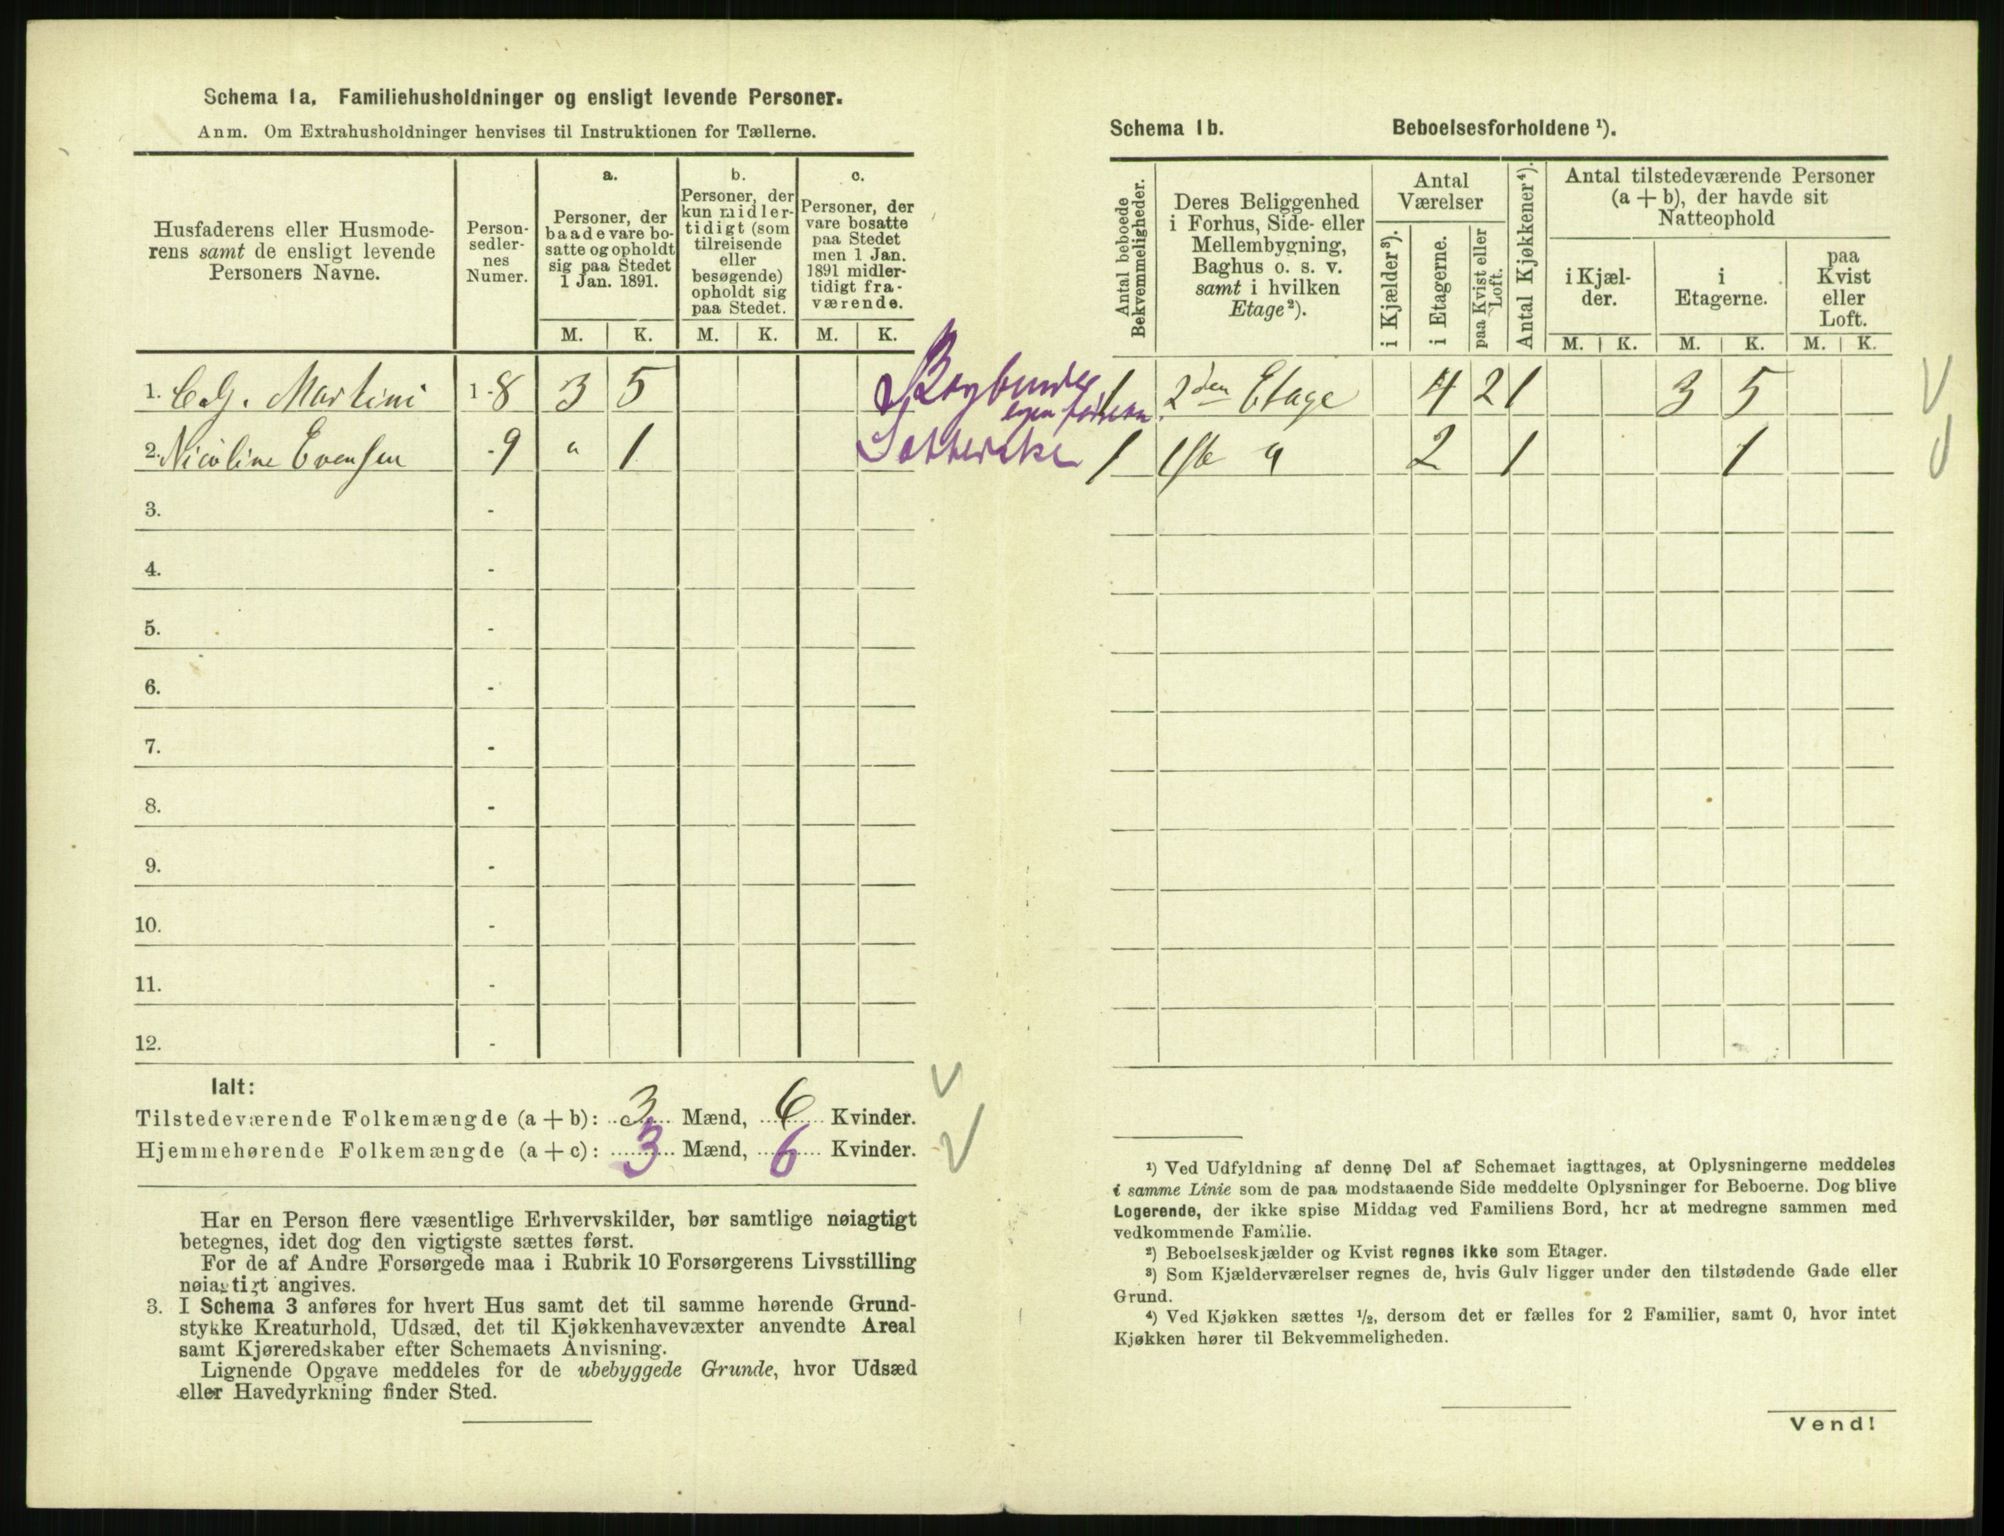 Schema 1a. Familiehusholdninger og ensligt levende Personer.
Anm. Om Extrahusholdninger henvises til Instruktionen for Tællerne.
Husfaderens eller Husmoderens samt de ensligt levende Personers Navne.
Personsedlernes Numer.
a.
Personer, der baade vare bosatte og opholdt sig paa Stedet 1 Jan. 1891.
b.
Personer, der kun midlertidigt (som tilreisende eller besøgende) opholdt sig paa Stedet.
c.
Personer, der vare bosatte paa Stedet men 1 Jan. 1891 midlertidigt fraværende.
M. K. M. K. M. K.
1. C.G. Martini 1-8 3 5
2. Nicoline Evensen -9 " 1
3. -
4. -
5. -
6. -
7. -
8. -
9. -
10. -
11. -
12. -
Ialt:
Tilstedeværende Folkemængde (a + b): 3 Mænd, 6 Kvinder.
Hjemmehørende Folkemængde (a + c): 3 Mænd, 6 Kvinder.
Har en Person flere væsentlige Erhvervskilder, bør samtlige nøiagtigt
betegnes, idet dog den vigtigste sættes først.
For de af Andre Forsørgede maa i Rubrik 10 Forsørgerens Livsstilling
nøiagtigt angives.
3. I Schema 3 anføres for hvert Hus samt det til samme hørende Grund-
stykke Kreaturhold, Udsæd, det til Kjøkkenhavevæxter anvendte Areal
samt Kjøreredskaber efter Schemaets Anvisning.
Lignende Opgave meddeles for de ubebyggede Grunde, hvor Udsæd
eller Havedyrkning finder Sted.
Schema 1b. Beboelsesforholdene ¹).
Antal beboede Bekvemmeligheder.
Deres Beliggenhed i Forhus, Side- eller Mellembygning, Baghus o. s. v. samt i hvilken Etage²).
Antal Værelser
i Kjælder³).
i Etagerne.
paa Kvist eller Loft.
Antal Kjøkkener⁴).
Antal tilstedeværende Personer (a + b), der havde sit Natteophold
i Kjælder.
i Etagerne.
paa Kvist eller Loft.
M. K. M. K. M. K.
1 2den Etage 4 2 1 3 5
1 1ste " 2 1 1
¹) Ved Udfyldning af denne Del af Schemaet iagttages, at Oplysningerne meddeles
i samme Linie som de paa modstaaende Side meddelte Oplysninger for Beboerne. Dog blive
Logerende, der ikke spise Middag ved Familiens Bord, her at medregne sammen med
vedkommende Familie.
²) Beboelseskjælder og Kvist regnes ikke som Etager.
³) Som Kjælderværelser regnes de, hvis Gulv ligger under den tilstødende Gade eller
Grund.
⁴) Ved Kjøkken sættes ½, dersom det er fælles for 2 Familier, samt 0, hvor intet
Kjøkken hører til Bekvemmeligheden.
Vend!